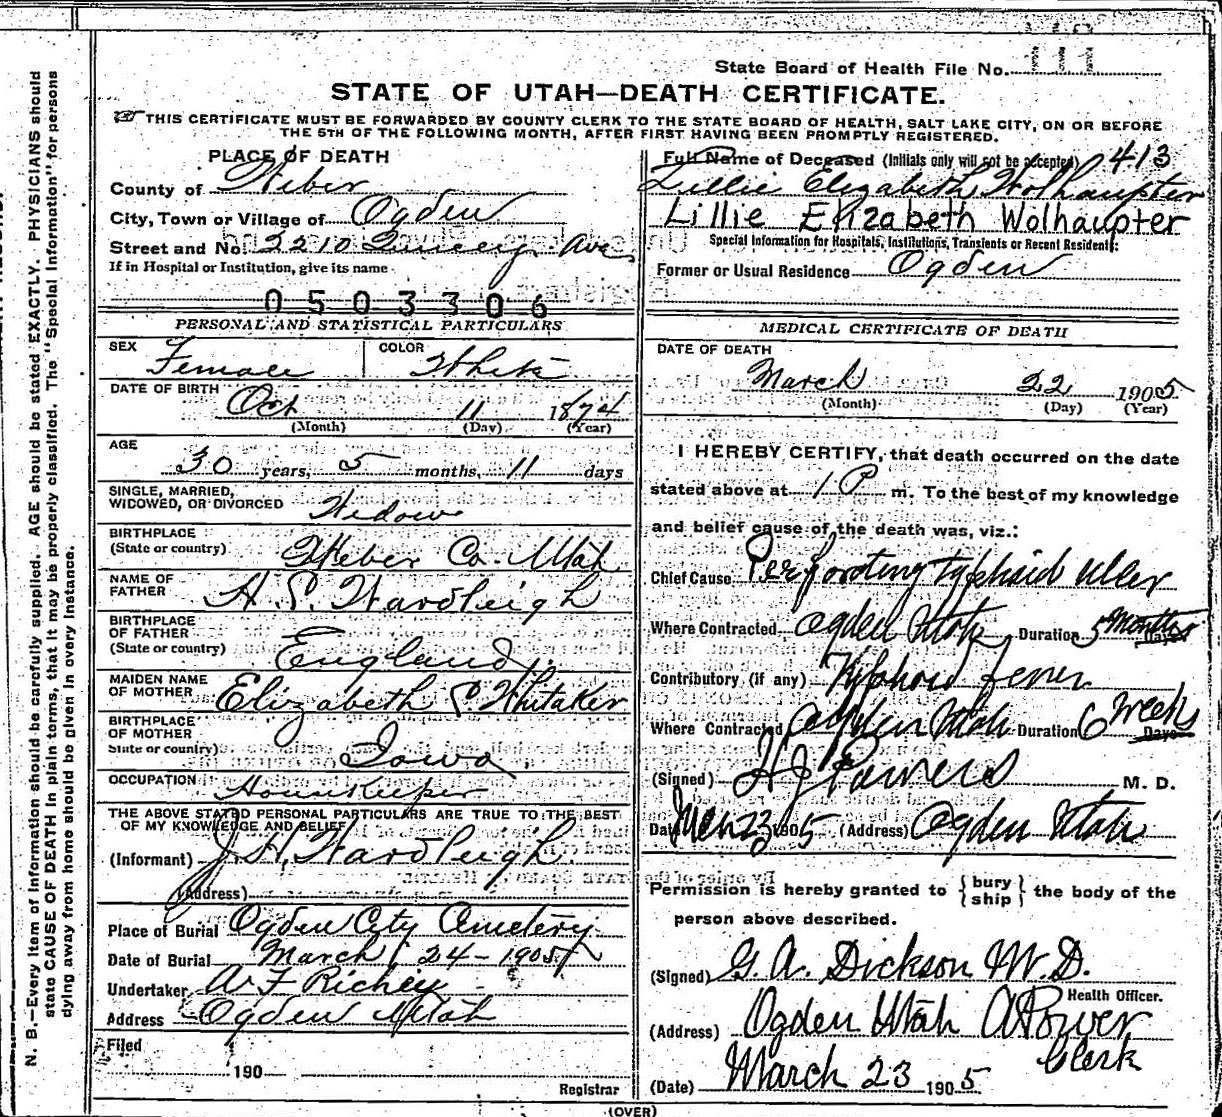 N. B.—Every item of information should be carefully supplied. AGE should be stated EXACTLY. PHYSICIANS should
state CAUSE OF DEATH in plain terms, that it may be properly classified. The "Special Information" for persons
dying away from home should be given in every instance.
State Board of Health File No. 111
STATE OF UTAH—DEATH CERTIFICATE.
THIS CERTIFICATE MUST BE FORWARDED BY COUNTY CLERK TO THE STATE BOARD OF HEALTH, SALT LAKE CITY, ON OR BEFORE
THE 5TH OF THE FOLLOWING MONTH, AFTER FIRST HAVING BEEN PROMPTLY REGISTERED.
PLACE OF DEATH
County of Weber
City, Town or Village of Ogden
Street and No. 2210 Quincy Ave
If in Hospital or Institution, give its name
0503306
PERSONAL AND STATISTICAL PARTICULARS
SEX Female COLOR White
DATE OF BIRTH Oct 11 1874
(Month) (Day) (Year)
AGE
30 years, 5 months, 11 days
SINGLE, MARRIED,
WIDOWED, OR DIVORCED Widow
BIRTHPLACE
(State or country) Weber Co. Utah
NAME OF
FATHER H. S. Wardleigh
BIRTHPLACE
OF FATHER
(State or country) England
MAIDEN NAME
OF MOTHER Elizabeth S Whitaker
BIRTHPLACE
OF MOTHER
State or country) Iowa.
OCCUPATION Housekeeper
THE ABOVE STATED PERSONAL PARTICULARS ARE TRUE TO THE BEST
OF MY KNOWLEDGE AND BELIEF
(Informant) J. H. Wardleigh
(Address)
Place of Burial Ogden City Cemetery
Date of Burial March 24-1905
Undertaker W F Richey
Address Ogden Utah
Filed
190
Registrar
Full Name of Deceased (Initials only will not be accepted) 413
Lillie Elizabeth Wolhaupter
Lillie Elizabeth Wolhaupter
Special Information for Hospitals, Institutions, Transients or Recent Residents:
Former or Usual Residence Ogden
MEDICAL CERTIFICATE OF DEATH
DATE OF DEATH
March 22 1905
(Month) (Day) (Year)
I HEREBY CERTIFY, that death occurred on the date
stated above at 1 P m. To the best of my knowledge
and belief cause of the death was, viz.:
Chief Cause Perforating typhoid ulcer
Where Contracted Ogden Utah Duration 5 Days
Contributory (if any) Typhoid fever
Where Contracted Ogden Utah Duration 6 weeks Days
(Signed) H J Powers M. D.
Date Mch 23 1905 (Address) Ogden Utah
Permission is hereby granted to {bury ship} the body of the
person above described.
(Signed) G. A. Dickson M.D.
Health Officer.
(Address) Ogden Utah A Power
Clerk
(Date) March 23 1905.
(OVER)